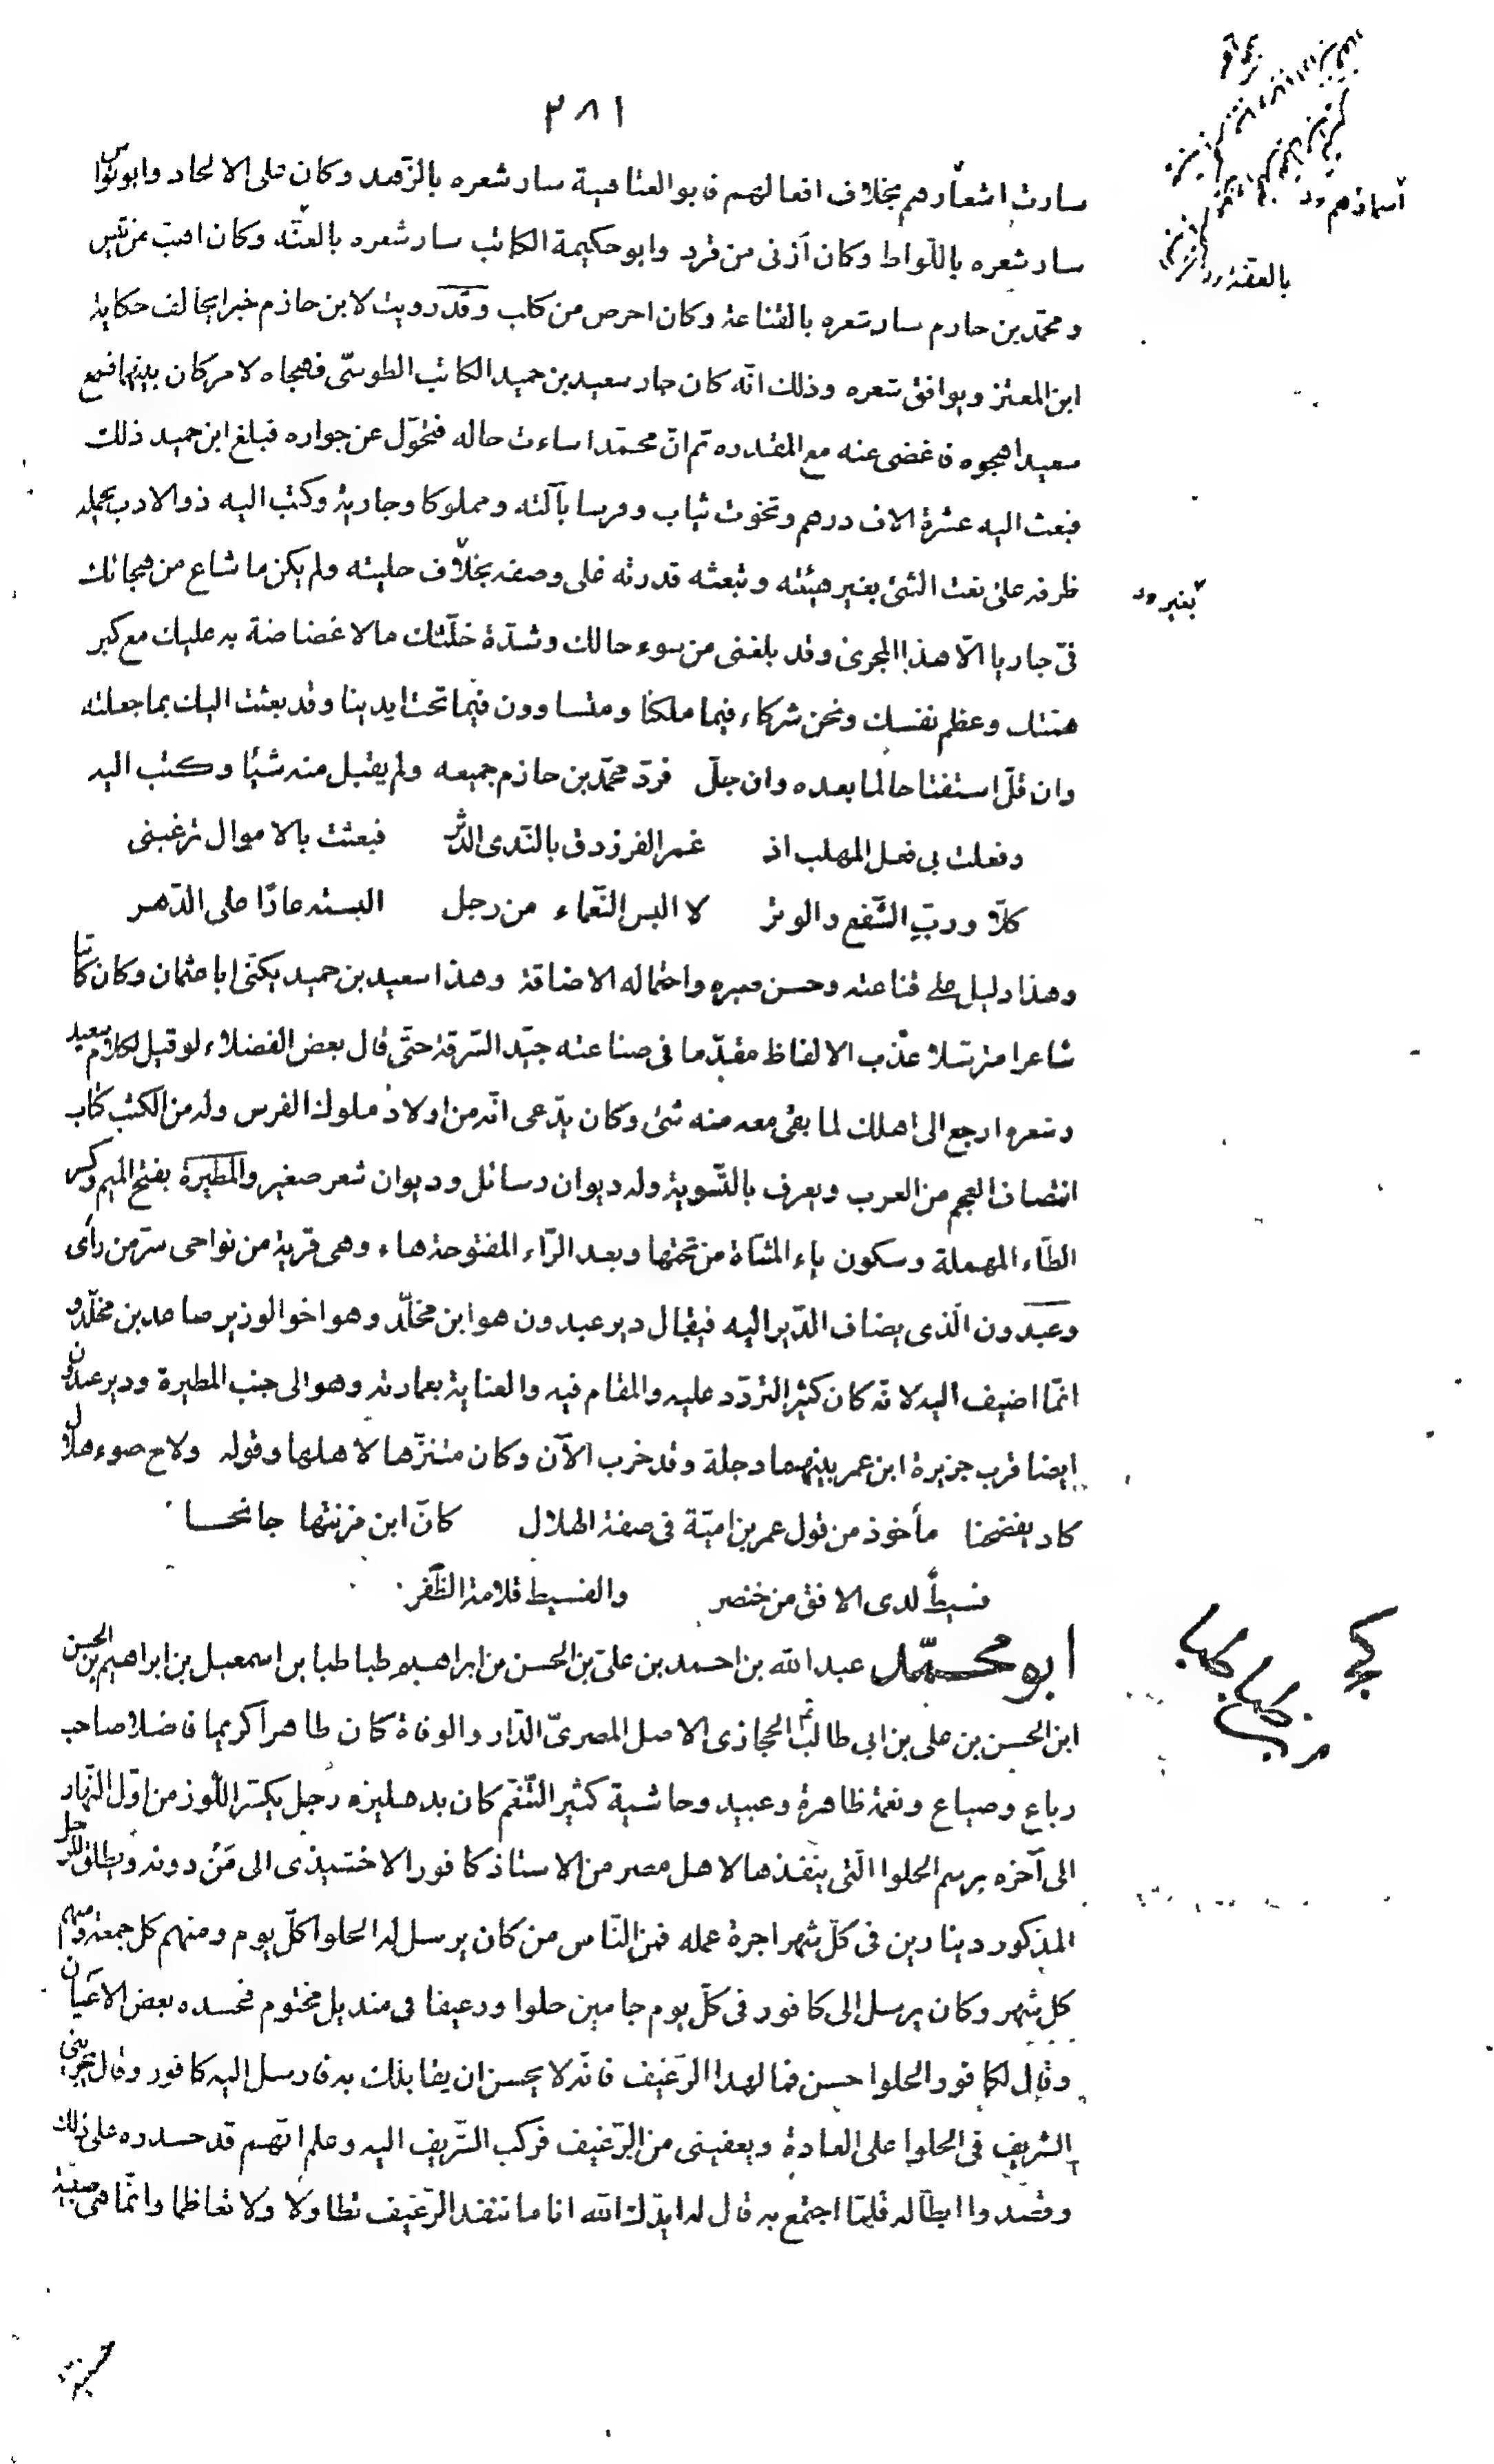 ٢٨١
سارت اشعارهم بخلاف افعالهم فابو العتاهية سار شعره بالزّهد وكان على الالحاد وابو نواس
سار شعره باللّواط وكان أزنى من قرد وابو حكيمة الكاتب سار شعره بالعنّة وكان اهبّ من تيس
ومحمّد بن حازم سار شعره بالقناعة وكان احرص من كلب وقد رويت لابن حازم خبرا يخالف حكاية
ابن المعتز ويوافق شعره وذلك انّه كان جار سعيد بن حميد الكاتب الطوسّى فهجاه لامر كان بينهما فسمع
سعيد اهجوه فاغضى عنه مع المقدره ثم انّ محمّدا ساءت حاله فتحوّل عن جواره فبلغ ابن حميد ذلك
فبعث اليه عشرة الاف درهم وتخوت ثياب وفرسا بآلته ومملوكا وجارية وكتب اليه ذو الادب يحمله
ظرفه على نعت الشئ بغير هيئته وتبعثه قدرته على وصفه بخلاف حليته ولم يكن ما شاع من هجائك
فىّ جاريا الّا هذا المجرى وقد بلغنى من سوء حالك وشدّة خلّتك ما لا غضاضة به عليك مع كبر
همّتك وعظم نفسك ونحن شركاء فيما ملكنا ومتساوون فيما تحت ايدينا وقد بعثت اليك بما جعلته
وان قلّ استفتاحا لما بعده وان جلّ فردّ محمّد بن حازم جميعه ولم يقبل منه شيئا وكتب اليه
وفعلت بى فعل المهلب اذ غمر الفرزدق بالنّدى الدّثر فبعثت بالاموال ترغبنى
كلّا وربّ الشّفع والوتر لا البس النّعماء من رجل البسته عارًا على الدّهر
وهذا دليل على قناعته وحسن صبره واحتماله الاضاقة وهذا سعيد بن حميد يكنّى ابا عثمان وكان كاتبا
شاعرا مترسّلا عذب الالفاظ مقدّما فى صناعته جيّد السّرقة حتّى قال بعض الفضلاء لو قيل لكلام سعيد
وشعره ارجع الى اهلك لما بقى معه منه شئ وكان يدّعى انّه من اولاد ملوك الفرس وله من الكتب كتاب
انتصاف العجم من العرب ويعرف بالتّسوية وله ديوان رسائل وديوان شعر صغير والمطيرة بفتح الميم وكسر
الطّاء المهملة وسكون ياء المثنّاة من تحتها وبعد الرّاء المفتوحة هاء وهى قرية من نواحى سرّ من رأى
وعبدون الّذى يضاف الدّير اليه فيقال دير عبدون هو ابن مخلّد وهو اخو الوزير صاعد بن مخلّد و
انّما اضيف اليه لانّه كان كثير التردّد عليه والمقام فيه والعناية بعمارته وهو الى جنب المطيرة ودير عبدون
ايضا قرب جزيرة ابن عمر بينهما دجلة وقد خرب الآن وكان متنزّها لاهلها وقوله ولاح ضوء هلال
كاد يفضحنا مأخوذ من قول عمر بن اميّة فى صفة الهلال كانّ ابن مزنتها جانحا
فسيطٌ لدى الافق من خنصر والفسيط قلامة الظّفر
ابو محمّد عبد الله بن احمد بن علىّ بن الحسن بن ابراهيم طباطبا بن اسمعيل بن ابراهيم بن الحسن
ابن الحسن بن على بن ابى طالب الحجازى الاصل المصرىّ الدّار والوفاة كان طاهرا كريما فاضلا صاحب
رباع وضياع ونعمة ظاهرة وعبيد وحاشية كثير التّنعّم كان بدهليزه رجل يكسّر اللّوز من اوّل النّهار
الى آخره برسم الحلوا الّتى ينفذها لاهل مصر من الاستاذ كافور الاخشيدى الى مَنْ دونه ويطلق للرجل
المذكور دينارين فى كلّ شهر اجرة عمله فمن النّاس من كان يرسل له الحلوا كلّ يوم ومنهم كل جمعة ومنهم
كل شهر وكان يرسل الى كافور فى كلّ يوم جامين حلوا ورغيفا فى منديل مختوم فحسده بعض الاعيان
وقال لكافور الحلوا حسن فما لهذا الرّغيف فانّه لا يحسن ان يقابلك به فارسل اليه كافور وقال يجرينى
الشريف فى الحلوا على العادة ويعفينى من الرّغيف فركب الشّريف اليه وعلم انّهم قد حسدوه على ذلك
وقصدوا ابطاله فلمّا اجتمع به قال له ايّدك الله انا ما ننفذ الرّغيف تطاولا ولا تعاظما وانّما هى صبيّة
بغير
ابن طباطبا
حسنية